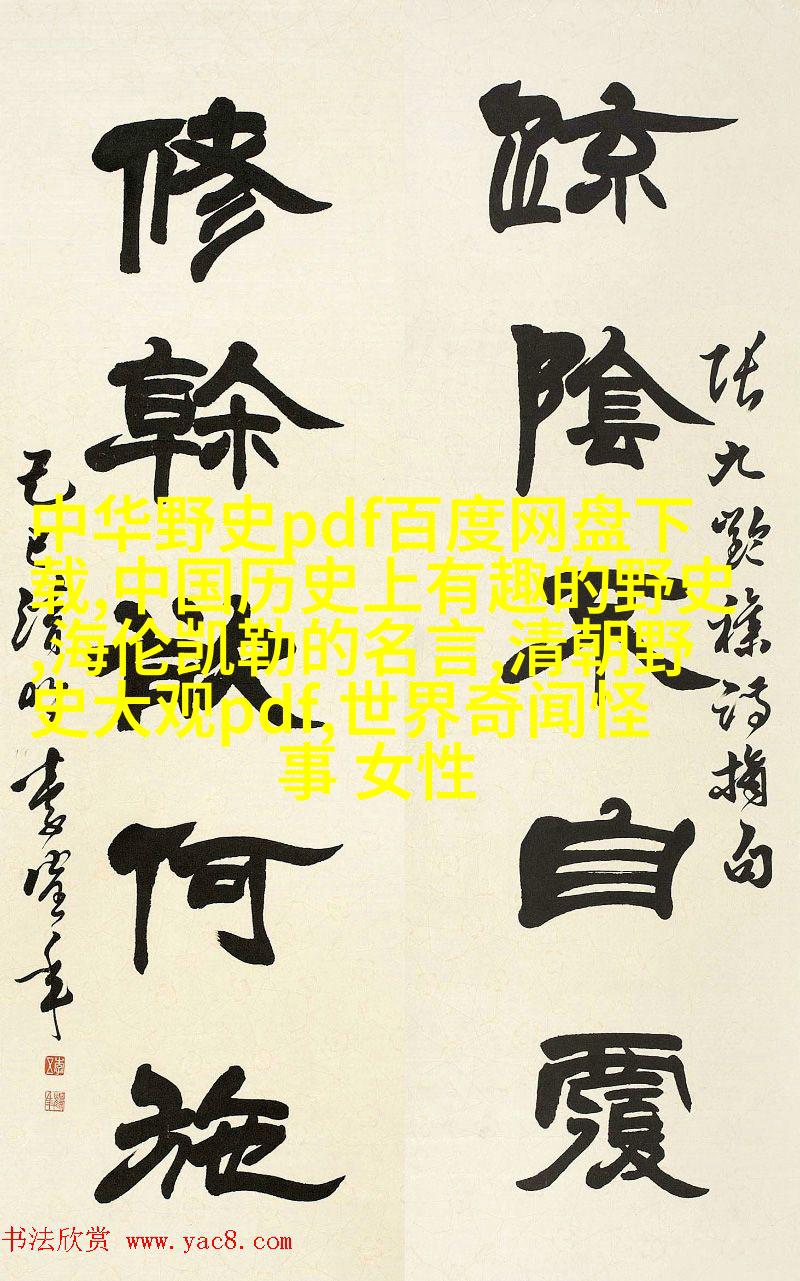 疏陰不自覆
張九齡雜詩摘句
修榦欲何施
己巳清明
中华野史pdf百度网盘下
载,中国历史上有趣的野史
,海伦凯勒的名言,清朝野
史大观pdf,世界奇闻怪
事 女性
书法欣赏 www.yac8.com